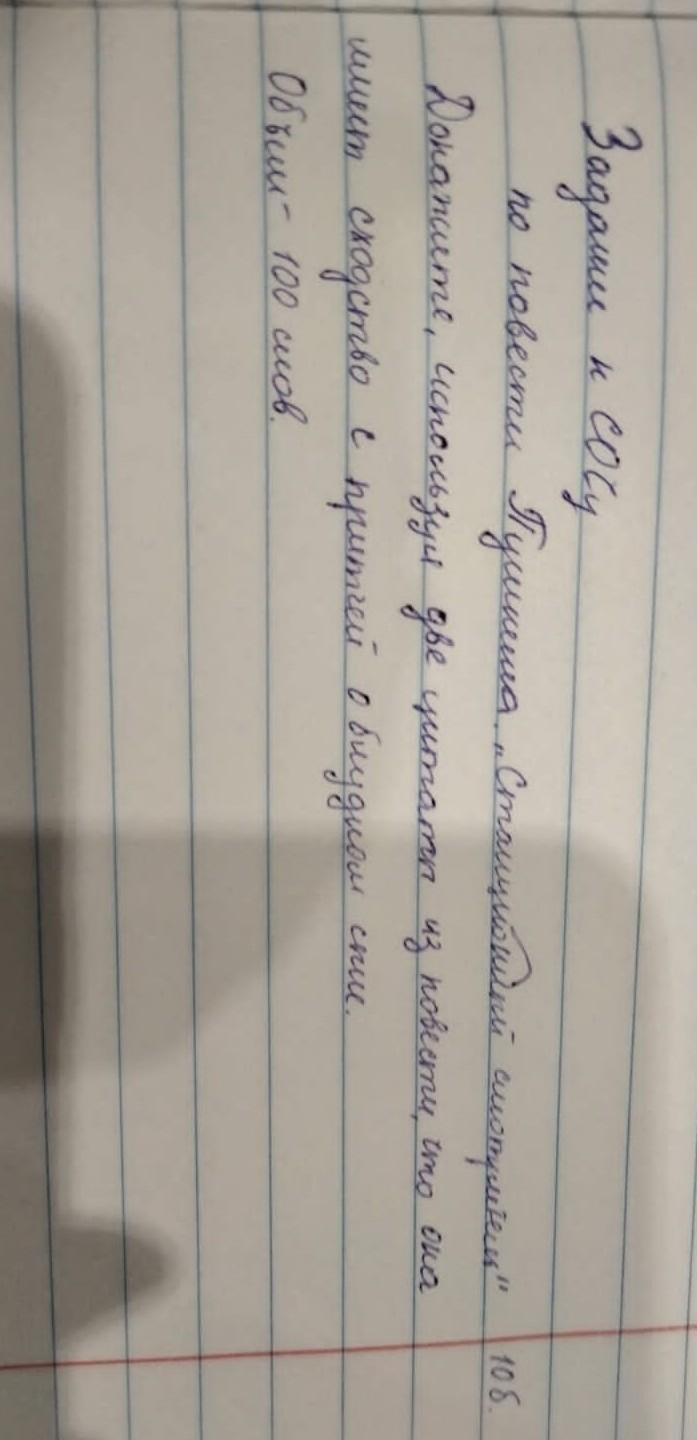 Задание к СОСу
по повести Пушкина „Станционный смотритель" 10б.
Докажите, используя две цитаты из повести, что она
имеет сходство с притчей о блудном сыне.
Объём - 100 слов.